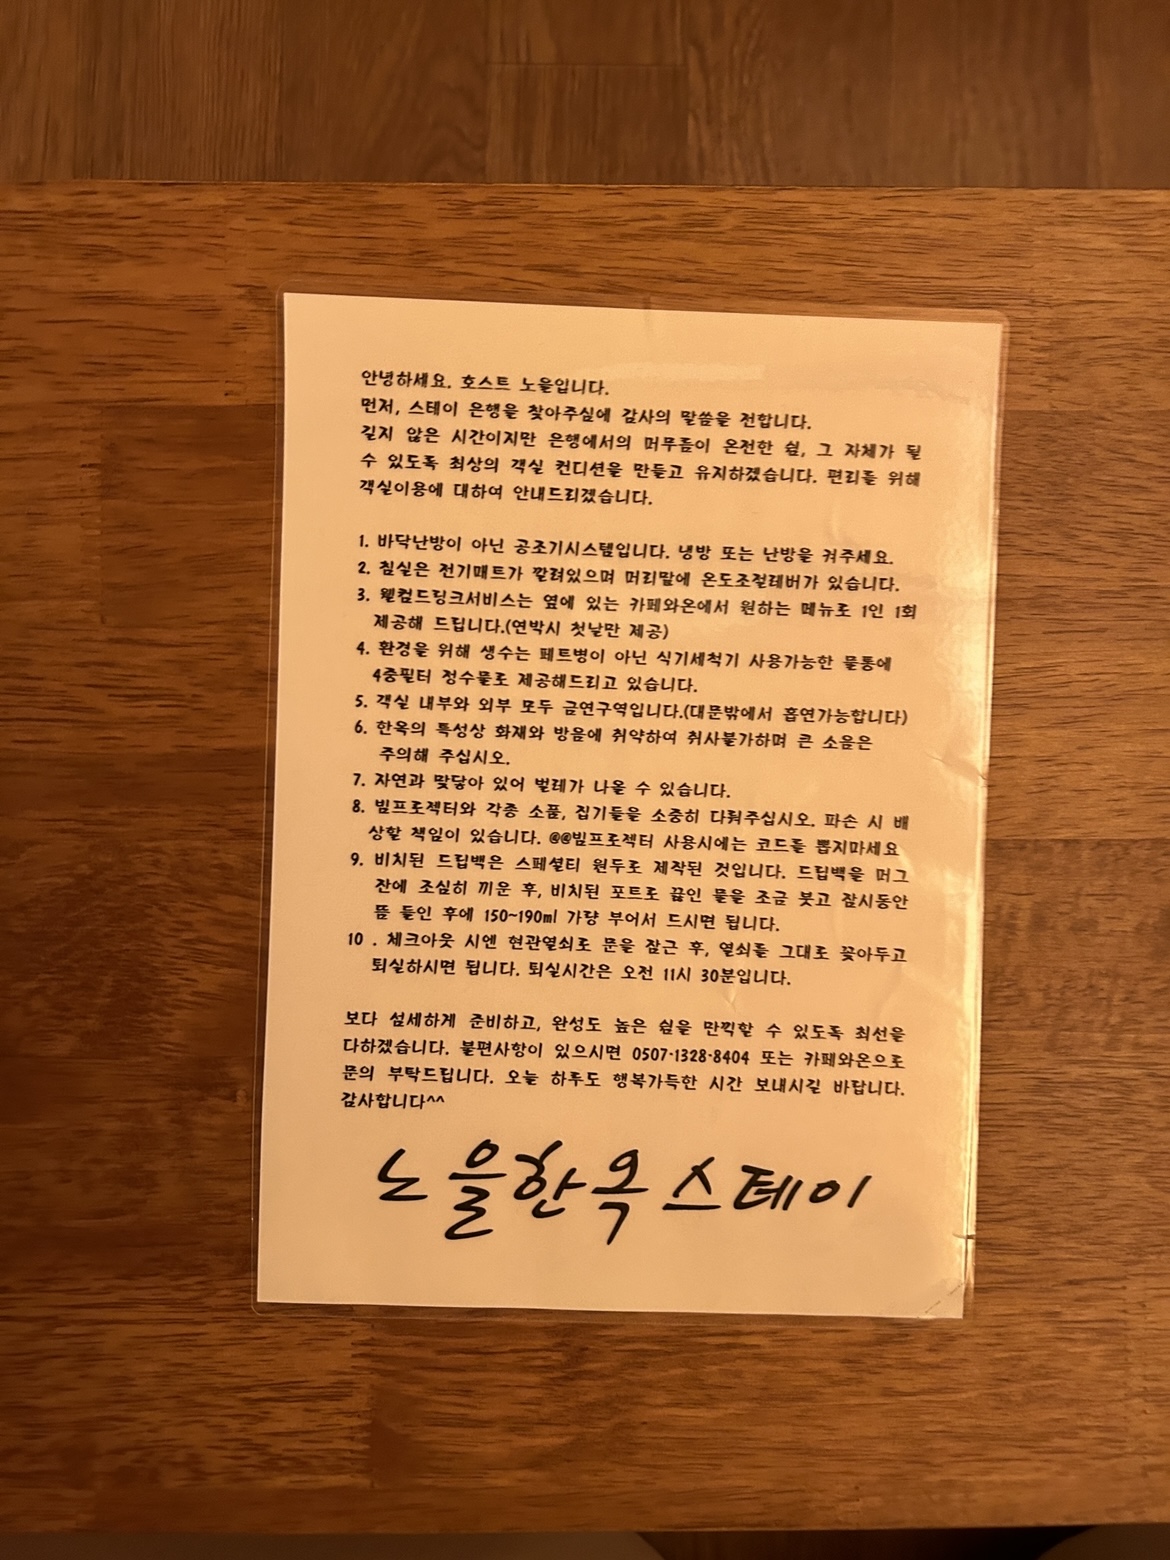 안녕하세요. 호스트 노을입니다.
먼저, 스테이 은행을 찾아주심에 감사의 말씀을 전합니다.
길지 않은 시간이지만 은행에서의 머무름이 온전한 쉼, 그 자체가 될
수 있도록 최상의 객실 컨디션을 만들고 유지하겠습니다. 편리를 위해
객실이용에 대하여 안내드리겠습니다.
1. 바닥난방이 아닌 공조기시스템입니다. 냉방 또는 난방을 켜주세요.
2. 침실은 전기매트가 깔려있으며 머리맡에 온도조절레버가 있습니다.
3. 웰컴드링크서비스는 옆에 있는 카페와온에서 원하는 메뉴로 1인 1회
제공해 드립니다.(연박시 첫날만 제공)
4. 환경을 위해 생수는 페트병이 아닌 식기세척기 사용가능한 물통에
4중필터 정수물로 제공해드리고 있습니다.
5. 객실 내부와 외부 모두 금연구역입니다.(대문밖에서 흡연가능합니다)
6. 한옥의 특성상 화재와 방음에 취약하여 취사불가하며 큰 소음은
주의해 주십시오.
7. 자연과 맞닿아 있어 벌레가 나올 수 있습니다.
8. 빔프로젝터와 각종 소품, 집기들을 소중히 다뤄주십시오. 파손 시 배
상할 책임이 있습니다. @@빔프로젝터 사용시에는 코드를 뽑지마세요
9. 비치된 드립백은 스페셜티 원두로 제작된 것입니다. 드립백을 머그
잔에 조심히 끼운 후, 비치된 포트로 끓인 물을 조금 붓고 잠시동안
뜸 들인 후에 150~190ml 가량 부어서 드시면 됩니다.
10 . 체크아웃 시엔 현관열쇠로 문을 잠근 후, 열쇠를 그대로 꽂아두고
퇴실하시면 됩니다. 퇴실시간은 오전 11시 30분입니다.
보다 섬세하게 준비하고, 완성도 높은 쉼을 만끽할 수 있도록 최선을
다하겠습니다. 불편사항이 있으시면 0507-1328-8404 또는 카페와온으로
문의 부탁드립니다. 오늘 하루도 행복가득한 시간 보내시길 바랍니다.
감사합니다^^
노을한옥스테이